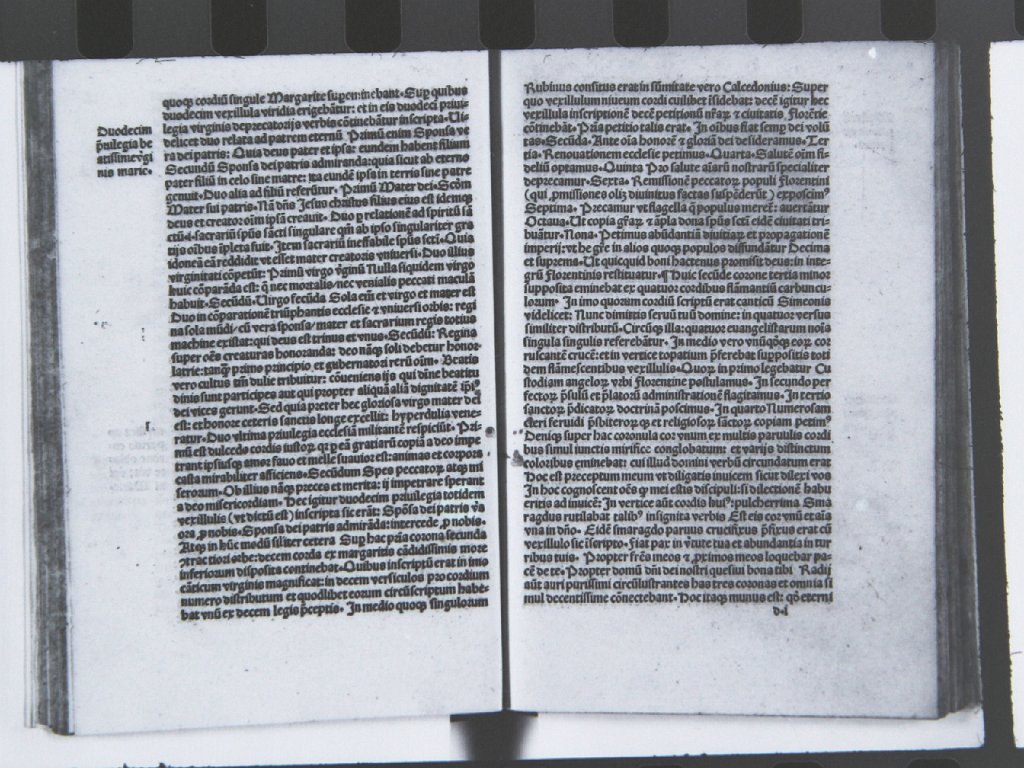 Duodecim
p̄uilegia be
atissime v̄gi
nis marie.
quoqȝ cordiū singule Margarite suppominebant. Sup quibus
duodecim vexillula viridia erigebātur: et in eis duodeci priui
legia virginis deprecatorijs verbis cōtinebātur inscripta. Ui
delicet duo relata ad patrem eternū. Primū enim Sponsa ve
ra dei patris: Quia deus pater et ipsa: eundem habent filium
Secundū Sponsa dei patris admiranda: quia sicut ab eterno
pater filiū in celo sine matre: ita eundē ipsa in terris sine patre
genuit. Duo alia ad filiū referūtur. Primū Mater dei. Scd̄m
Mater sui patris. Nā dn̄s Jesus christus filius eius est idemqȝ
deus et creator: oīm ipsā creauit. Duo p relationē ad spiritū sā
ctū. sacrariū spūs sācti singulare qm̄ ab ipso singulariter gra
tijs oībus īpleta fuit. Item sacrariū ineffabile spūs scti. Quia
idoneā eā reddidit vt esset mater creatoris vniuersi. Duo illius
virginitati cōpetūt: Primū virgo v̄ginū Nulla siquidem virgo
huic cōparāda est: q̄ nec mortalis nec venialis peccati maculā
habuit. Secūdū. Uirgo fecūda Sola em̄ et virgo et mater est
Duo in cōparationē triūphantis ecclesie & vniuersi orbis: regi
na sola mūdi cū vera sponsa mater et sacrarium regis totius
machine existat: qui deus est trinus et vnus. Secūdū: Regina
super oēs creaturas honoranda: deo nāqȝ soli debetur honor
latrie: tanqȝ primo principio et gubernatori rerū oīm. Beatis
vero cultus tm̄ dulie tribuitur: cōueniens ijs qui diuine beatitu
dinis sunt participes aut qui propter aliquā aliā dignitatē ip̄i
dei vices gerunt. Sed quia preter hec gloriosa virgo mater dei
est: et honore ceteris sanctis longe excellit: hyperdulia vene
ratur. Duo vltima priuilegia ecclesiā militantē respiciūt. Pri
mū est dulcedo cordis iustoꝝ qꝛ p eā gratiarū copia a deo impe
trant ipsiusqȝ amor fauo et melle suauior est: animas et corpora
casta mirabiliter afficiens. Secūdum Spes peccatoꝝ atqȝ mi
seroꝝum. Ob illius nāqȝ preces et merita: ij impetrare sperant
a deo misericordiam. Hec igitur duodecim priuilegia totidem
vexillulis (vt dictū est) inscripta sic erāt: Spōsa dei patris v̄a
ora p nobis. Sponsa dei patris admirāda: intercede p nobis.
Atqȝ in hūc modū siliter cetera Sup hac p̄ria corona secunda
decem corda ex margaritis cādidissimis more
inferiorum disposita continebat. Quibus inscriptū erat in imo
cāticum virginis magnificat: in decem versiculos pro cordium
numero distributum et quodlibet eorum circūscriptum habe
bat vnū ex decem legis p̄ceptis. In medio quoqȝ singulorum
Rubinus consitus erat in sūmitate vero Calcedonius: Super
quo vexillulum niueum cordi cuilibet īsidebat: decē igitur hec
vexillula inscriptionē decē petitionū nr̄aꝝ & ciuitatis Florētie
cōtinebāt. P̄ria petitio talis erat. In oībus fiat semp dei volū
tas. Secūda. Ante oīa honorē & gloriā dei desideramus. Ter
tia. Renouationem ecclesie petimus. Quarta. Salutē oīm fi
deliū optamus. Quinta Pro salute aīarū nostrarū specialiter
deprecamur. Sexta. Remissionē peccatoꝝ populi Florentini
(qui pmissiones oli divinitus factas suspēderūt) exposcim9
Septima. Precamur vt flagella q̄ populus meret: auertātur
Octaua. Ut copia gr̄aꝝ & āpla dona spūs scti eidē ciuitati tri
buātur. Nona. Petimus abūdantiā diuitiaꝝ et propagationē
imperij: vt he gr̄e in alios quoqȝ populos diffundātur Decima
et suprema. Ut quicquid boni hactenus promisit deus: in inte
grū Florentinis restituatur. ¶ Huic secūde corone tertia minor
supposita eminebat ex quatuor cordibus flāmantiū carbuncu
lorum. In imo quorum cordiū scriptū erat canticū Simeonis
videlicet: Nunc dimittis seruū tuū domine: in quatuor versus
similiter distributū. Circūqȝ illa: quatuor euangelistarum noīa
singula singulis referebātur. In medio vero vnūqđqȝ eoꝝ cor
ruscantē crucē: et in vertice topatium p̄ferebat suppositis toti
dem flāmescentibus vexillulis. Quoꝝ in primo legebatur Cu
stodiam angeloꝝ vrbi Florentine postulamus. In secundo per
fectoꝝ p̄sulū et p̄latorū administrationē flagitamus. In tertio
sanctoꝝ p̄dicatoꝝ doctrinā poscimus. In quarto Numerosam
cleri feruidi p̄sbiteroꝝ qȝ et religiosoꝝ sactoꝝ copiam petim9
Deniqȝ super hac coronula cor vnum ex multis paruulis cordi
bus simul iunctis mirifice conglobatum: et varijs distinctum
coloribus eminebat: cui illud domini verbū circundatum erat
Hoc est preceptum meum vt diligatis inuicem sicut dilexi vos
In hoc cognoscent oēs qꝛ mei estis discipuli: si dilectionē habu
eritis ad inuicē: In vertice aūt cordis hui9: pulcherrima Sma
ragdus rutilabat talib9 insignita verbis Est eis cor vnū et aīa
vna in dn̄o. Eidē smaragdo paruus crucifixus p̄fixus erat cū
vexillulo sic īscripto. Fiat pax in v̄tute tua et abundantia in tur
ribus tuis. Propter fr̄es meos & proximos meos loquebar pa
cē de te. Propter domū dn̄i dei nostri quesiui bona tibi Radij
aūt auri purissimi circūlustrantes has tres coronas et omnia si
mul decentissime cōnectebant. Hoc itaqȝ munus est: qđ eterni
d i